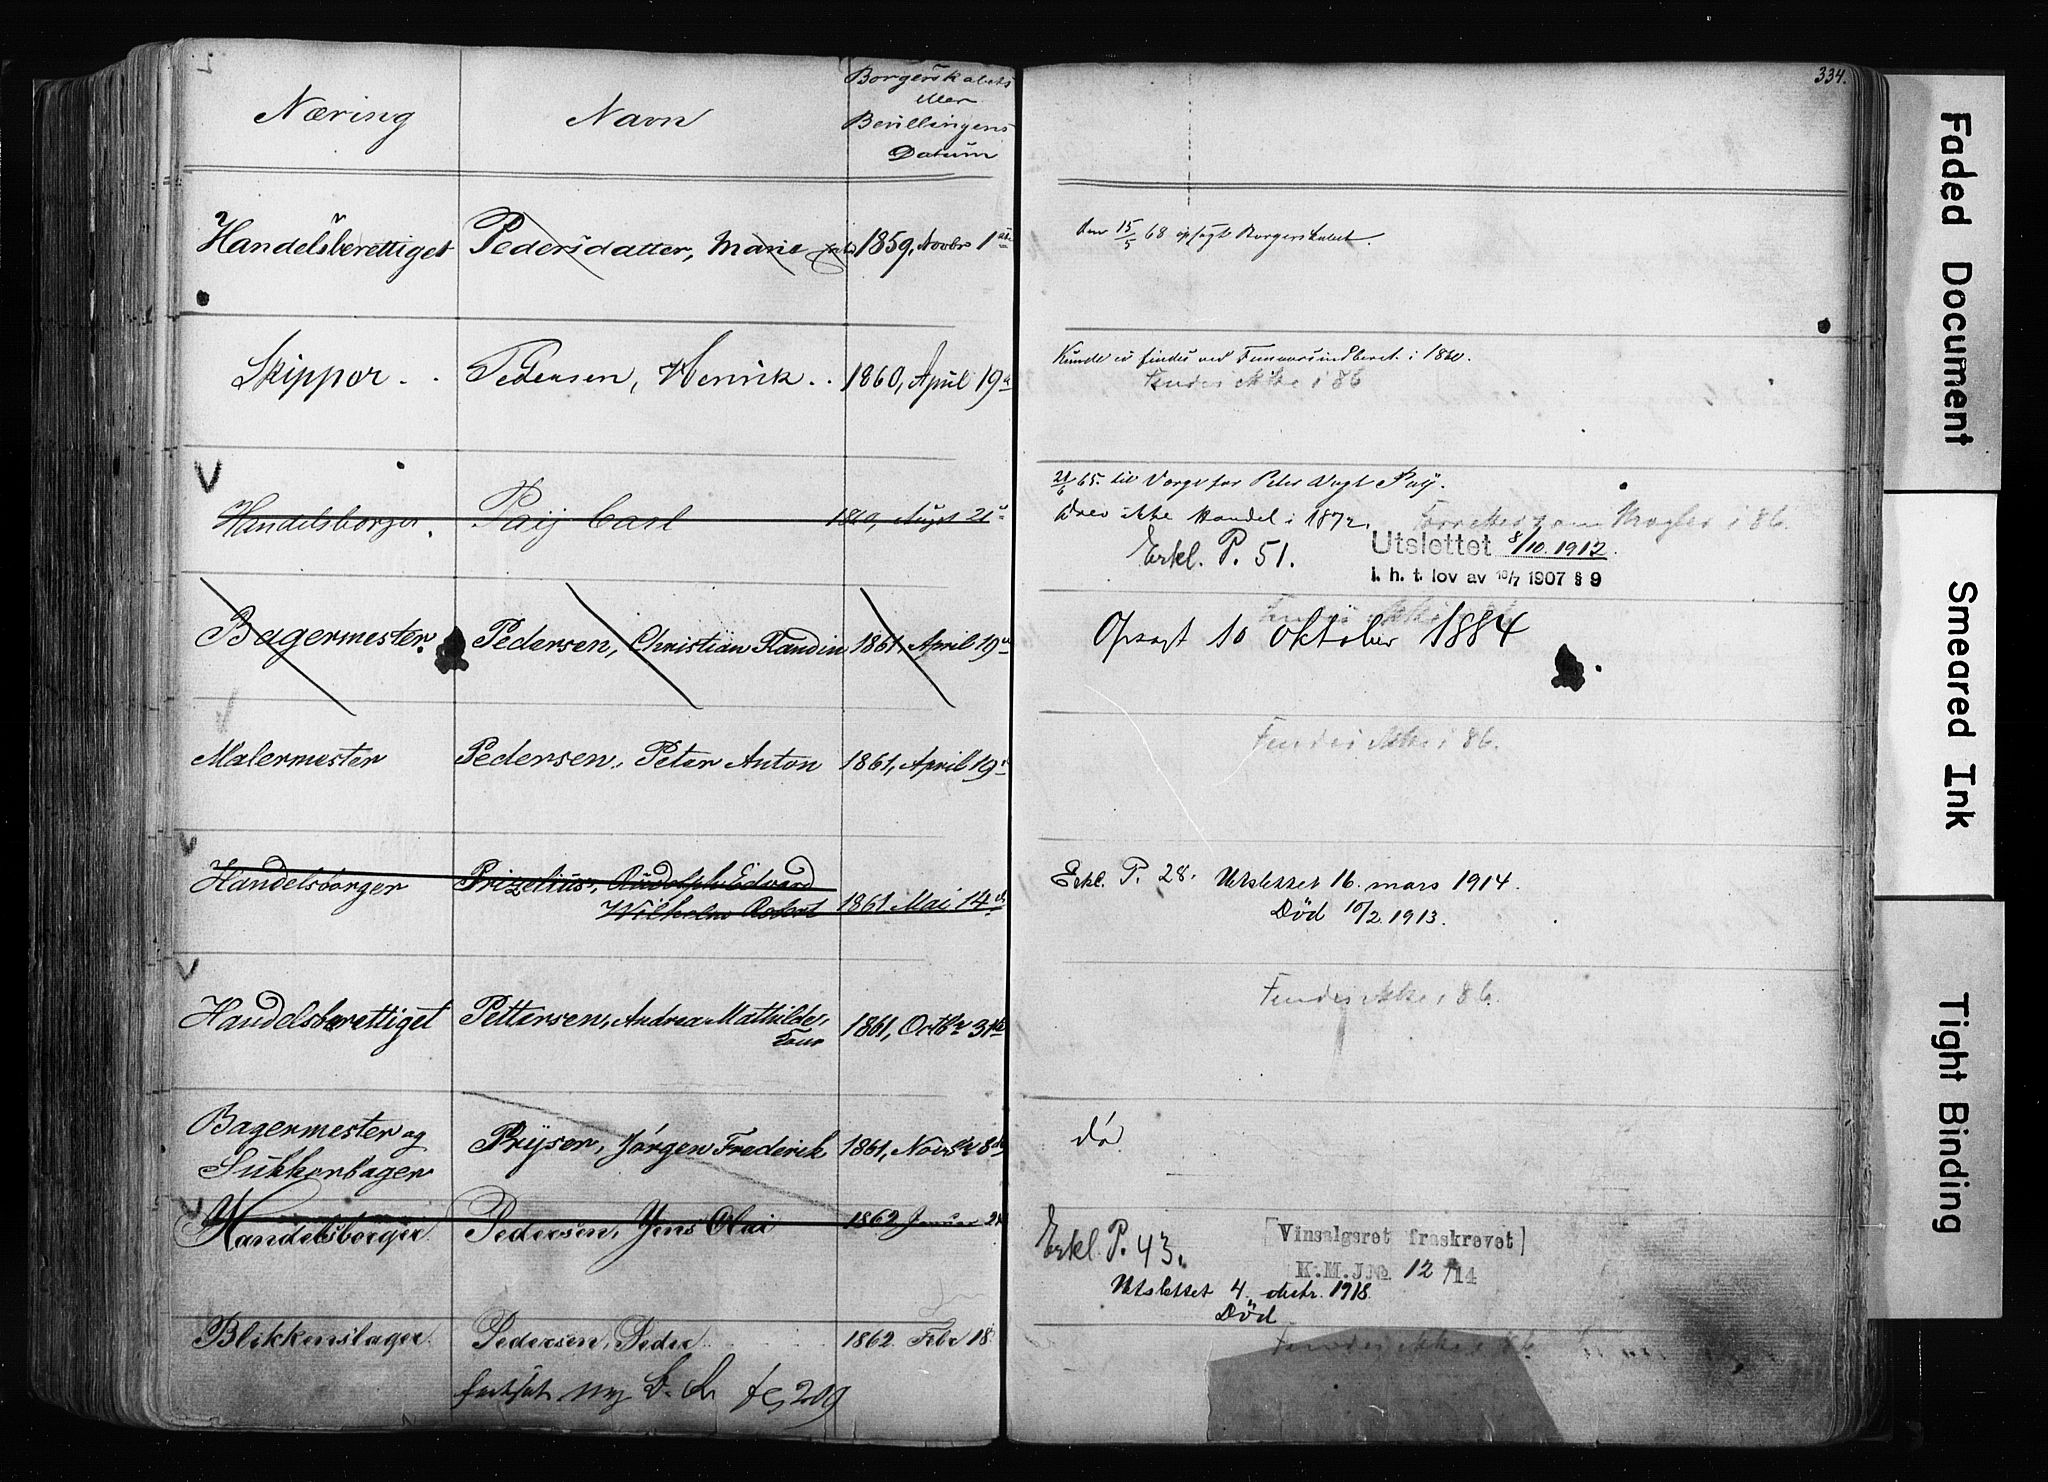 334.
Næring
Navn
Borgerskabets
eller
Bevillingens
Datum
Handelsberettiget Pedersdatter, Marie 1859, Novbr 1
den 15/5 68 opsagt Borgerskabet.
Skipper Pedersen, Henrik 1860, April 19
Kunde ei findes ved i 1860.
Findes ikke i 86
Handelsborger. Paij Carl 1860, Augst 21
21/6 65. til Værge for Peter Vogt Paij.
Drev ikke Handel i 1872. i 86.
Erkl. P. 51.
Utslettet 8/10. 1912.
i. h. t. lov av 10/7 1907 § 9
Bagermester. Pedersen, Christian Randin 1861, April 19
Findes ikke i 86
Opsagt 10 Oktober 1884
Malermester Pedersen, Peter Anton 1861, April 19
Findes ikke i 86.
Handelsborger Prizelius, Rudolph Edvard
Wilhelm Robert 1861 Mai 14
Erkl. P. 28. Utslettet 16. mars 1914.
Død 10/2. 1913.
Handelsberettiget Pettersen, Andrea Mathilde, 1861, Octbr 31
Findes ikke i 86.
Bagermester og
Sukkerbager
Prÿser, Jørgen Frederik 1861, Novbr 8
dø
Handelsborger Pedersen, Jens Olai 1862 Januar 24
Erkl. P. 43.
[Vinsalgsret fraskrevet]
K. M. J.№ 12/14
Utslettet 4. 1918.
Død
Blikkenslager Pedersen, Peder 1862 Febr 18
Findes ikke i 86
fortsat ny 209
Faded Document
Smeared Ink
Tight Binding